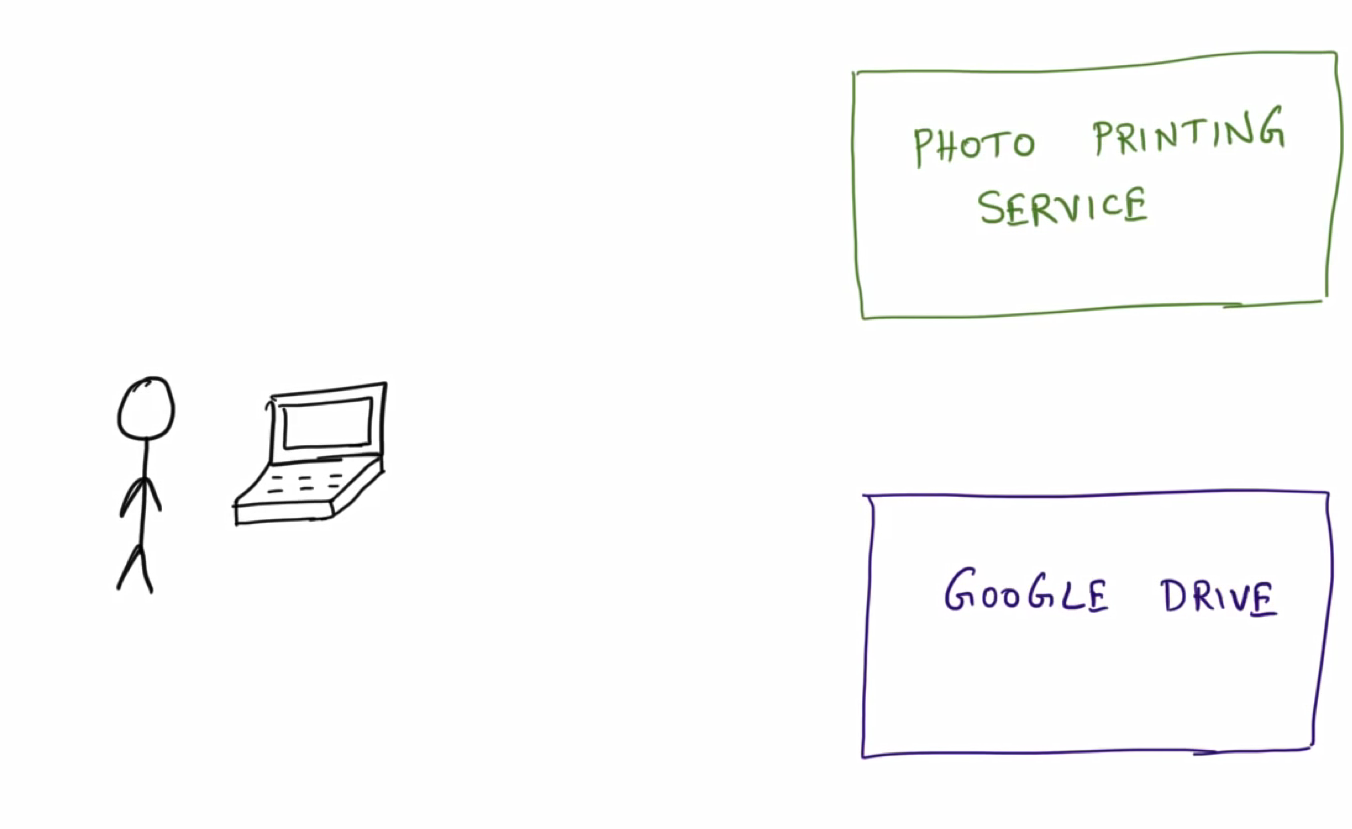 PHOTO PRINTING
SERVICE
GOOGLE DRIVE